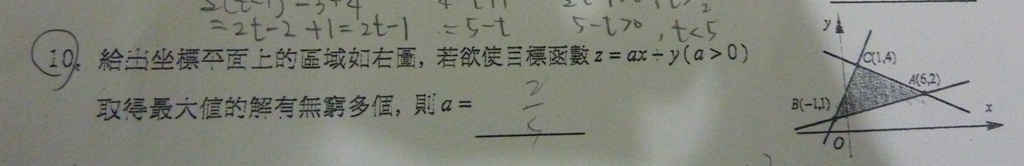 =2t-2+1=2t-1 =5-t 5-t>0, t<5
10. 給出坐標平面上的區域如右圖, 若欲使目標函數 z = ax + y (a > 0)
取得最大值的解有無窮多個, 則 a = 2/5
y
C(1,4)
A(6,2)
B(-1,1)
x
O